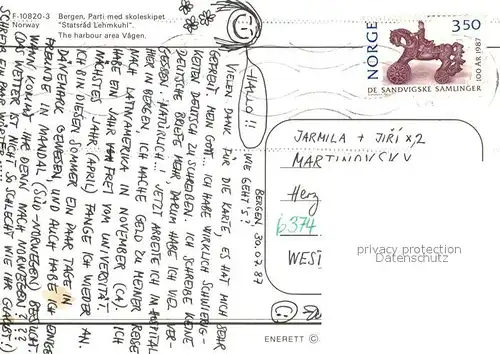 F-10820-3 Bergen, Parti med skoleskipet
Norway "Statsråd Lehmkuhl".
The harbour area Vågen.
NORGE
350
100 ÅR 1987
DE SANDVIGSKE SAMLINGER
BERGEN 30.07.87
HALLO!! WIE GEHT'S?
VIELEN DANK FÜR DIE KARTE, ES HAT MICH SEHR
GEFREUT. MEIN GOTT... ICH HABE WIRKLICH SCHWIERIG-
KEITEN DEUTSCH ZU SCHREIBEN. ICH SCHREIBE KEINE
DEUTSCHE BRIEFE MEHR, DARUM HABE ICH VIEL VER-
GESSEN. NATÜRLICH... JETZT ARBEITE ICH IM HOSPITAL
HIER IN BERGEN. ICH MACHE GELD ZU MEINER REISE
NACH LATINAMERIKA IN NOVEMBER (CA). ICH
HABE EIN JAHR FREI VOM UNIVERSITÄT
NÄCHSTES JAHR (APRIL) FANGE ICH WIEDER AN.
ICH BIN DIESEN SOMMER EIN PAAR TAGE IN
DÄNEMARK GEWESEN, UND AUCH HABE ICH EINIGE
FREUNDE IN MANDAL (SÜD-NORWEGEN) BESUCHT
WANN KOMMT IHR DENN NACH NORWEGEN????
(DAS WETTER IST NICHT SO SCHLECHT WIE IHR GLAUBT!)
SCHREIB EIN PAAR WÖRTER!!...
JARMILA + JIŘÍ x,2
MARTINOVSKY
Herz
b374
WEST
privacy protection
Datenschutz
ENERETT ©